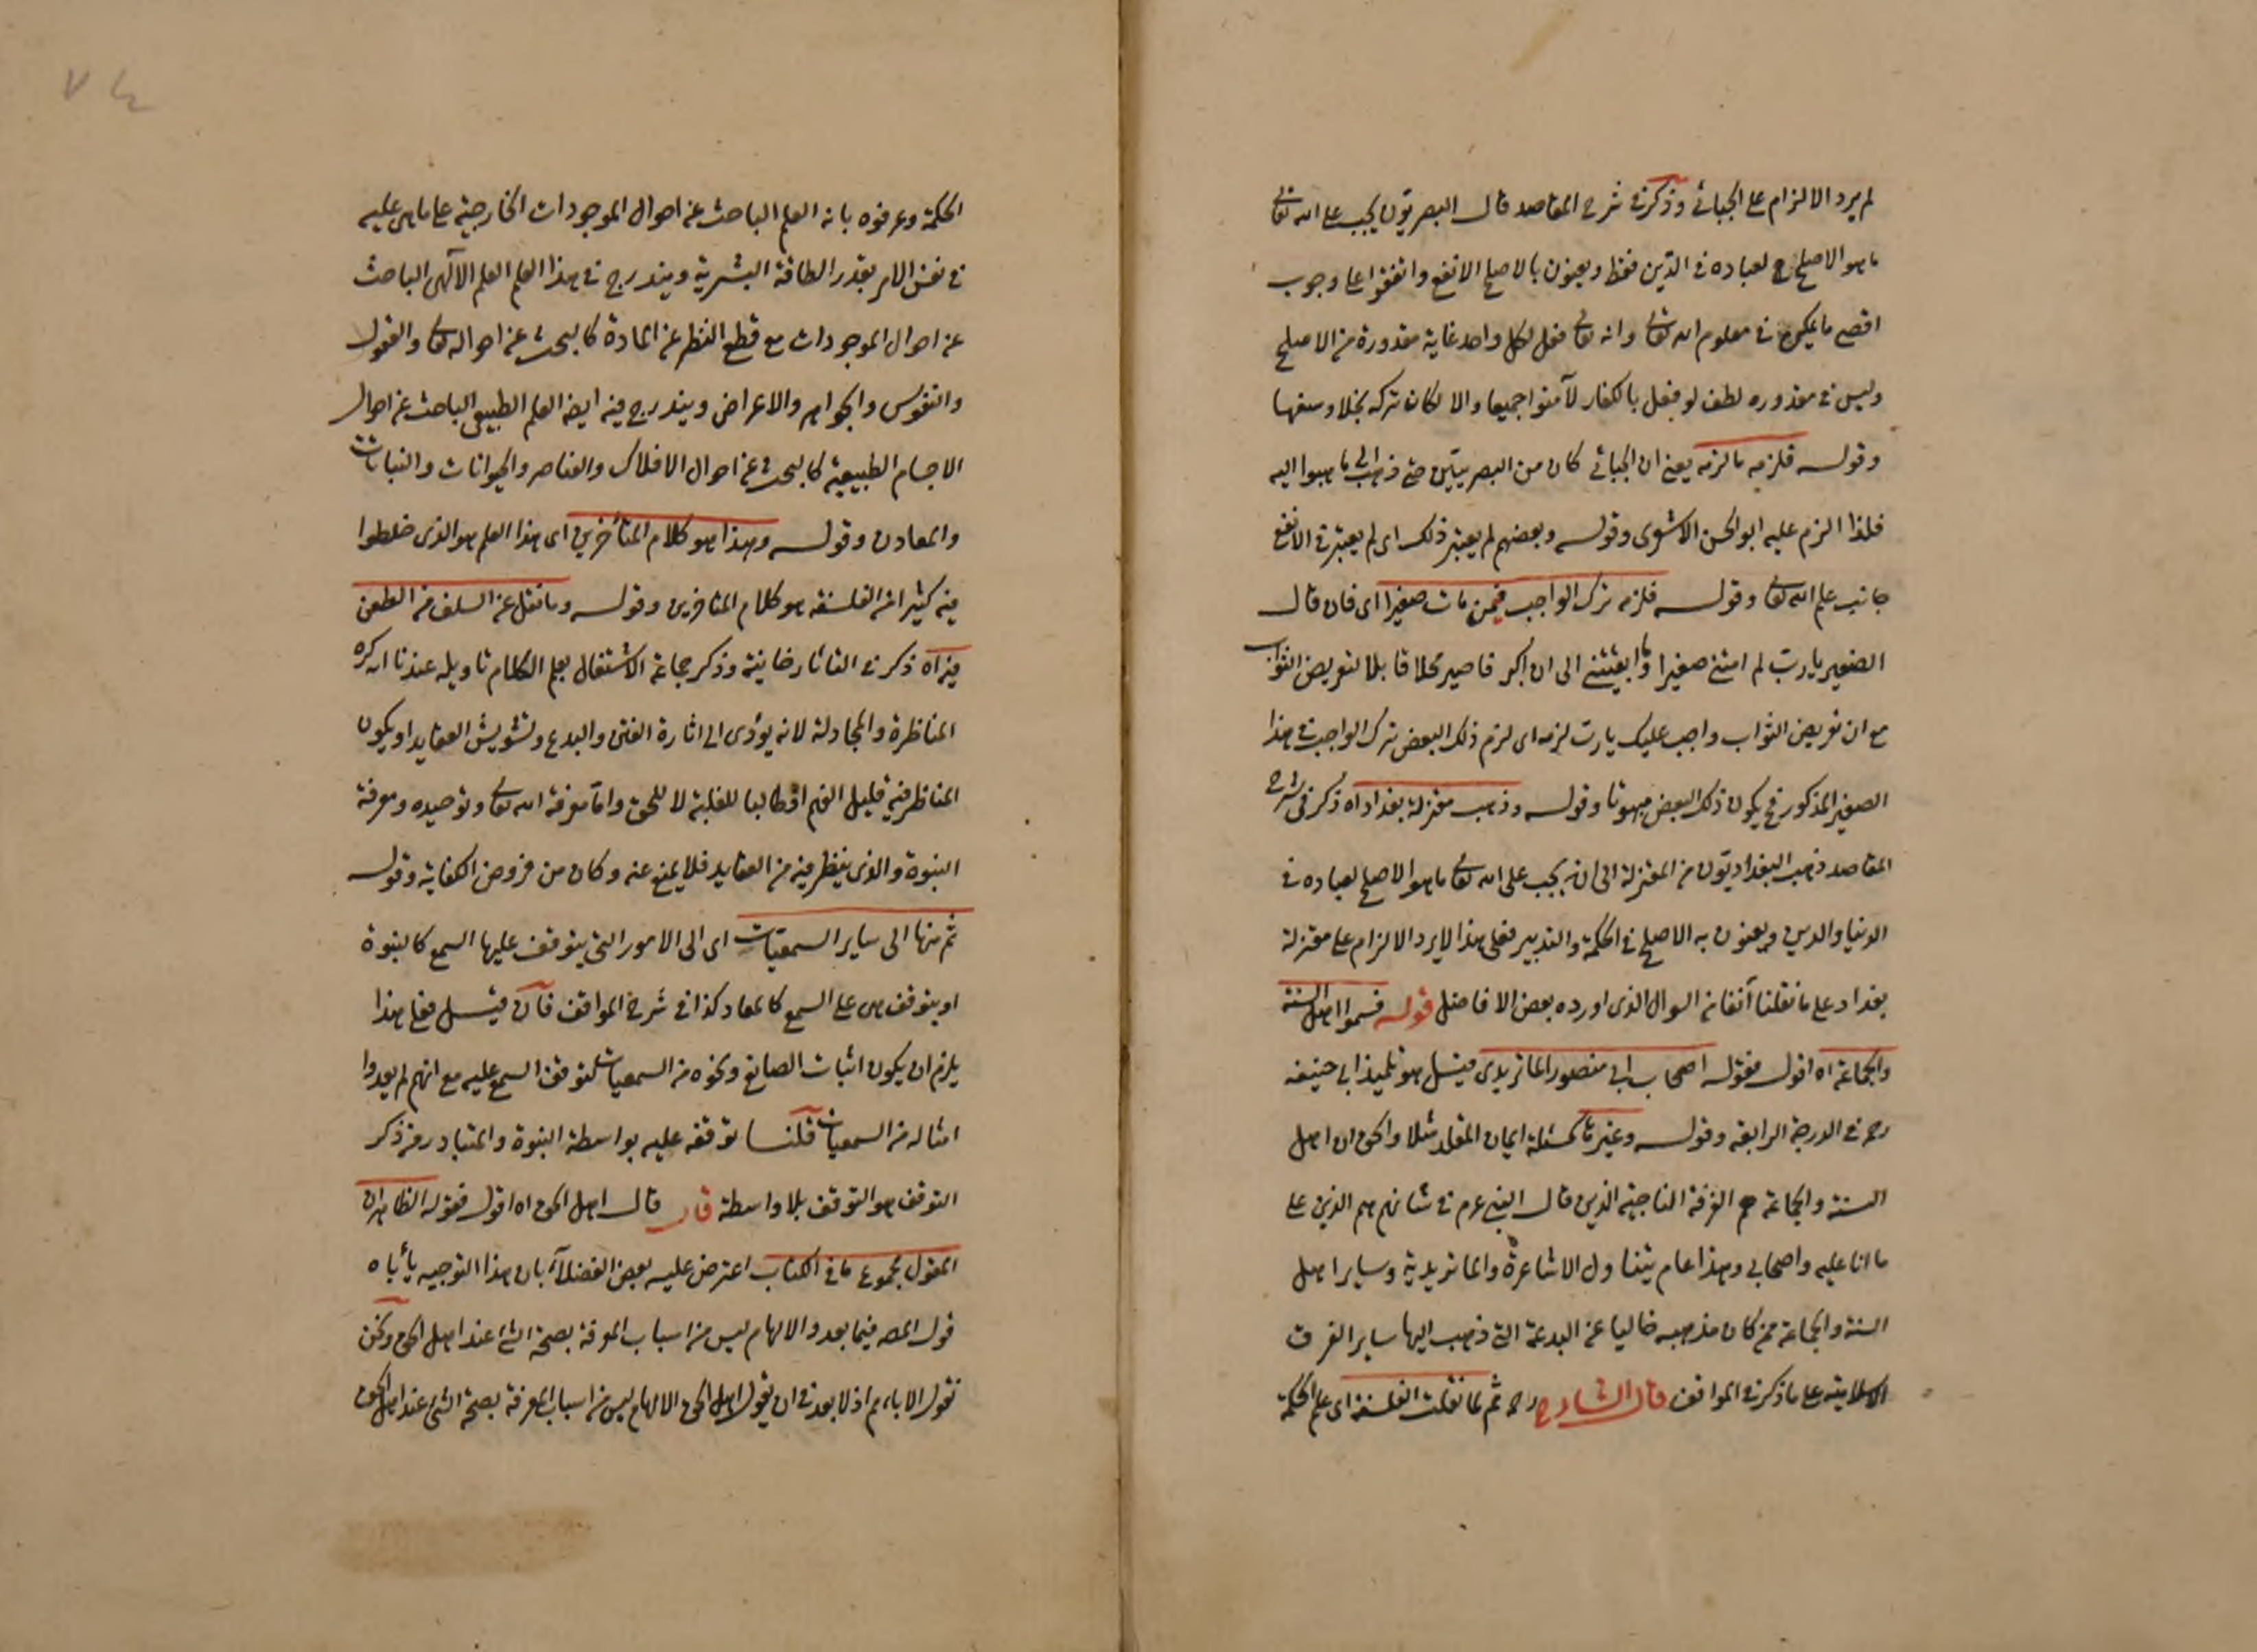 لم يرد الالزام على الجبائى وذكر فى شرح المقاصد قال البصريون يجب على الله تعالى
ما هو الاصلح لعباده فى الدين فقط ويعنون بالاصلح الانفع واتفقوا على وجوب
اقصى ما يمكن فى معلوم الله تعالى وانه تعالى فعل لكل واحد غاية مقدورة من الاصلح
وليس فى مقدوره لطف لو فعل بالكفار لآمنوا جميعا والا لكان تركه بخلا وسفها
وقوله فلزمه ما لزمه يعنى ان الجبائى كان من البصريين حتى ذهب الى ما ذهبوا اليه
فلذا الزم عليه ابو الحسن الاشعرى وقوله وبعضهم لم يعتبر ذلك اى لم يعتبر فى الانفع
جانب علم الله تعالى وقوله فلزمه ترك الواجب فيمن مات صغيرا اى فان قال
الصغير يا رب لم امتنى صغيرا وما ابقيتنى الى ان اكبر فاصير محلا قابلا لتعويض الثواب
مع ان تعريض الثواب واجب عليك يا رب لزمه اى لزم ذلك البعض ترك الواجب فى هذا
الصغير المذكور فح يكون ذلك البعض مبهوتا وقوله وذهب معتزلة بغداد اه ذكر فى شرح
المقاصد ذهب البغداديون من المعتزلة الى انه يجب على الله تعالى ما هو الاصلح لعباده فى
الدنيا والدين ويعنون به الاصلح فى الحكمة والتدبير فعلى هذا لا يرد الالزام على معتزلة
بغداد على ما نقلنا آنفا من السوال الذى اورده بعض الافاضل قوله فسموا اهل السنة
والجماعة اه اقول فقوله اصحاب ابى منصور الماتريدى قيل هو تلميذ ابى حنيفه
رحمه فى الدرجة الرابعه وقوله وغيرها كمسئلة ايمان المقلد مثلا والحق ان اهل
السنة والجماعة هم الفرقة الناجية الذين قال النبى عم فى شانهم هم الذين على
ما انا عليه واصحابى وهذا عام يتناول الاشاعرة والماتريدية وساير اهل
السنة والجماعة ممن كان مذهبه خاليا عن البدعة التى ذهب اليها ساير الفرق
الاسلامية على ما ذكر فى المواقف قال الشارح رحمه ثم لما نقلت الفلسفة اى علم الحكمة
٧٤
الحكمة وعرفوه بانه العلم الباحث عن احوال الموجودات الخارجية على ما هى عليه
فى نفس الامر بقدر الطاقة البشرية ويندرج فى هذا العلم العلم الآلهى الباحث
عن احوال الموجودات مع قطع النظر عن المادة كالبحث عن احواله تعالى والعقول
والنفوس والجواهر والاعراض ويندرج فيه ايضا العلم الطبيعى الباحث عن احوال
الاجسام الطبيعية كالبحث عن احوال الافلاك والعناصر والحيوانات والنباتات
والمعادن وقوله وهذا هو كلام المتأخرين اى هذا العلم هو الذى خلطوا
فيه كثيرا من الفلسفة هو كلام المتاخرين وقوله وما نقل عن السلف من الطعن
فيه اه ذكر فى التاتارخانية وذكر جماعة الاشتغال بعلم الكلام تاويله عندنا انه كره
المناظرة والمجادلة لانه يؤدى الى اثارة الفتن والبدع وتشويش العقايد او يكون
المناظر فيه قليل الفهم او طالبا للغلبة لا للحق واما معرفة الله تعالى وتوحيده ومعرفة
النبوة والذى ينظر فيه من العقايد فلا يمنع عنه وكان من فروض الكفاية وقوله
ثم منها الى ساير السمعيات اى الى الامور التى يتوقف عليها السمع كالنبوة
او يتوقف هى على السمع كالمعاد كذا فى شرح المواقف فان قيل فعلى هذا
يلزم ان يكون اثبات الصانع ونحوه من السمعيات لتوقف السمع عليه مع انهم لم يعدوا
امثاله من السمعيات قلنا توقفه عليه بواسطة النبوة والمتبادر من ذكر
التوقف هو التوقف بلا واسطة قال قال اهل الحق اه اقول فقوله الظاهر ان
المقول مجموع ما فى الكتاب اعترض عليه بعض الفضلاء بان هذا التوجيه يأباه
قول المص فيما بعد والالهام ليس من اسباب المعرفة بصحة الشئ عند اهل الحق ونحن
نقول الاباء مم اذ لا بعد فى ان يقول اهل الحق الالهام ليس من اسباب المعرفة بصحة الشئ عند اهل الحق